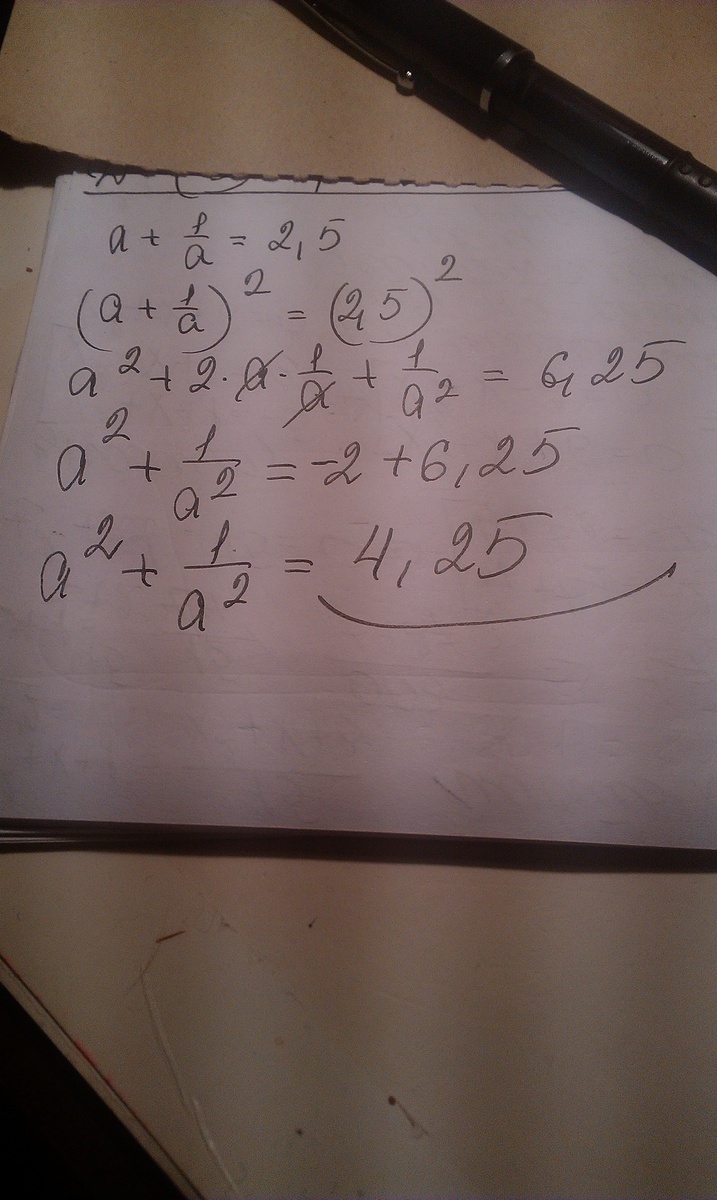 a + 1/a = 2,5
(a + 1/a)² = (2,5)²
a² + 2·a·1/a + 1/a² = 6,25
a² + 1/a² = -2 + 6,25
a² + 1/a² = 4,25